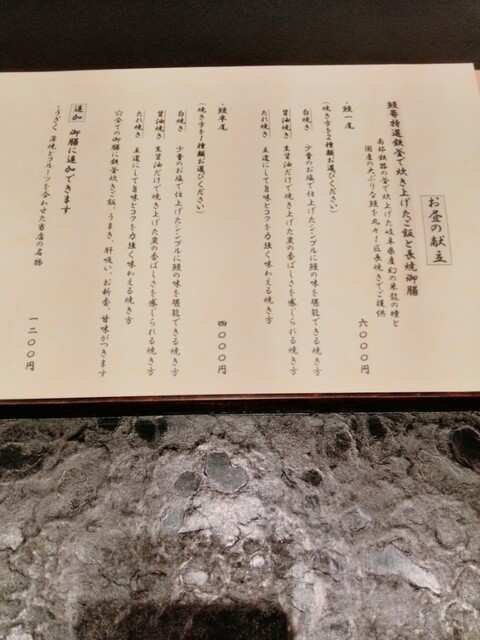 お昼の献立
鰻専特選鉄釜で炊き上げたご飯と長焼御膳
南部鉄器の釜で炊き上げた岐阜県産幻の米龍の瞳と
国産の大ぶりな鰻を丸々一匹長焼きでご提供
・鰻一尾　六〇〇〇円
(焼き方を2種類お選びください)
白焼き　少量のお塩で仕上げたシンプルに鰻の味を堪能できる焼き方
醤油焼き　生醤油だけで焼き上げた炭の香ばしさを感じられる焼き方
たれ焼き　王道にして旨味とコクを力強く味わえる焼き方
・鰻半尾　四〇〇〇円
(焼き方を1種類お選びください)
白焼き　少量のお塩で仕上げたシンプルに鰻の味を堪能できる焼き方
醤油焼き　生醤油だけで焼き上げた炭の香ばしさを感じられる焼き方
たれ焼き　王道にして旨味とコクを力強く味わえる焼き方
☆全ての御膳に鉄釜炊きご飯、うまき、肝吸い、お新香、甘味がつきます
追加　御膳に追加できます
・うざく 深焼とフルーツを合わせた当店の名物　一二〇〇円